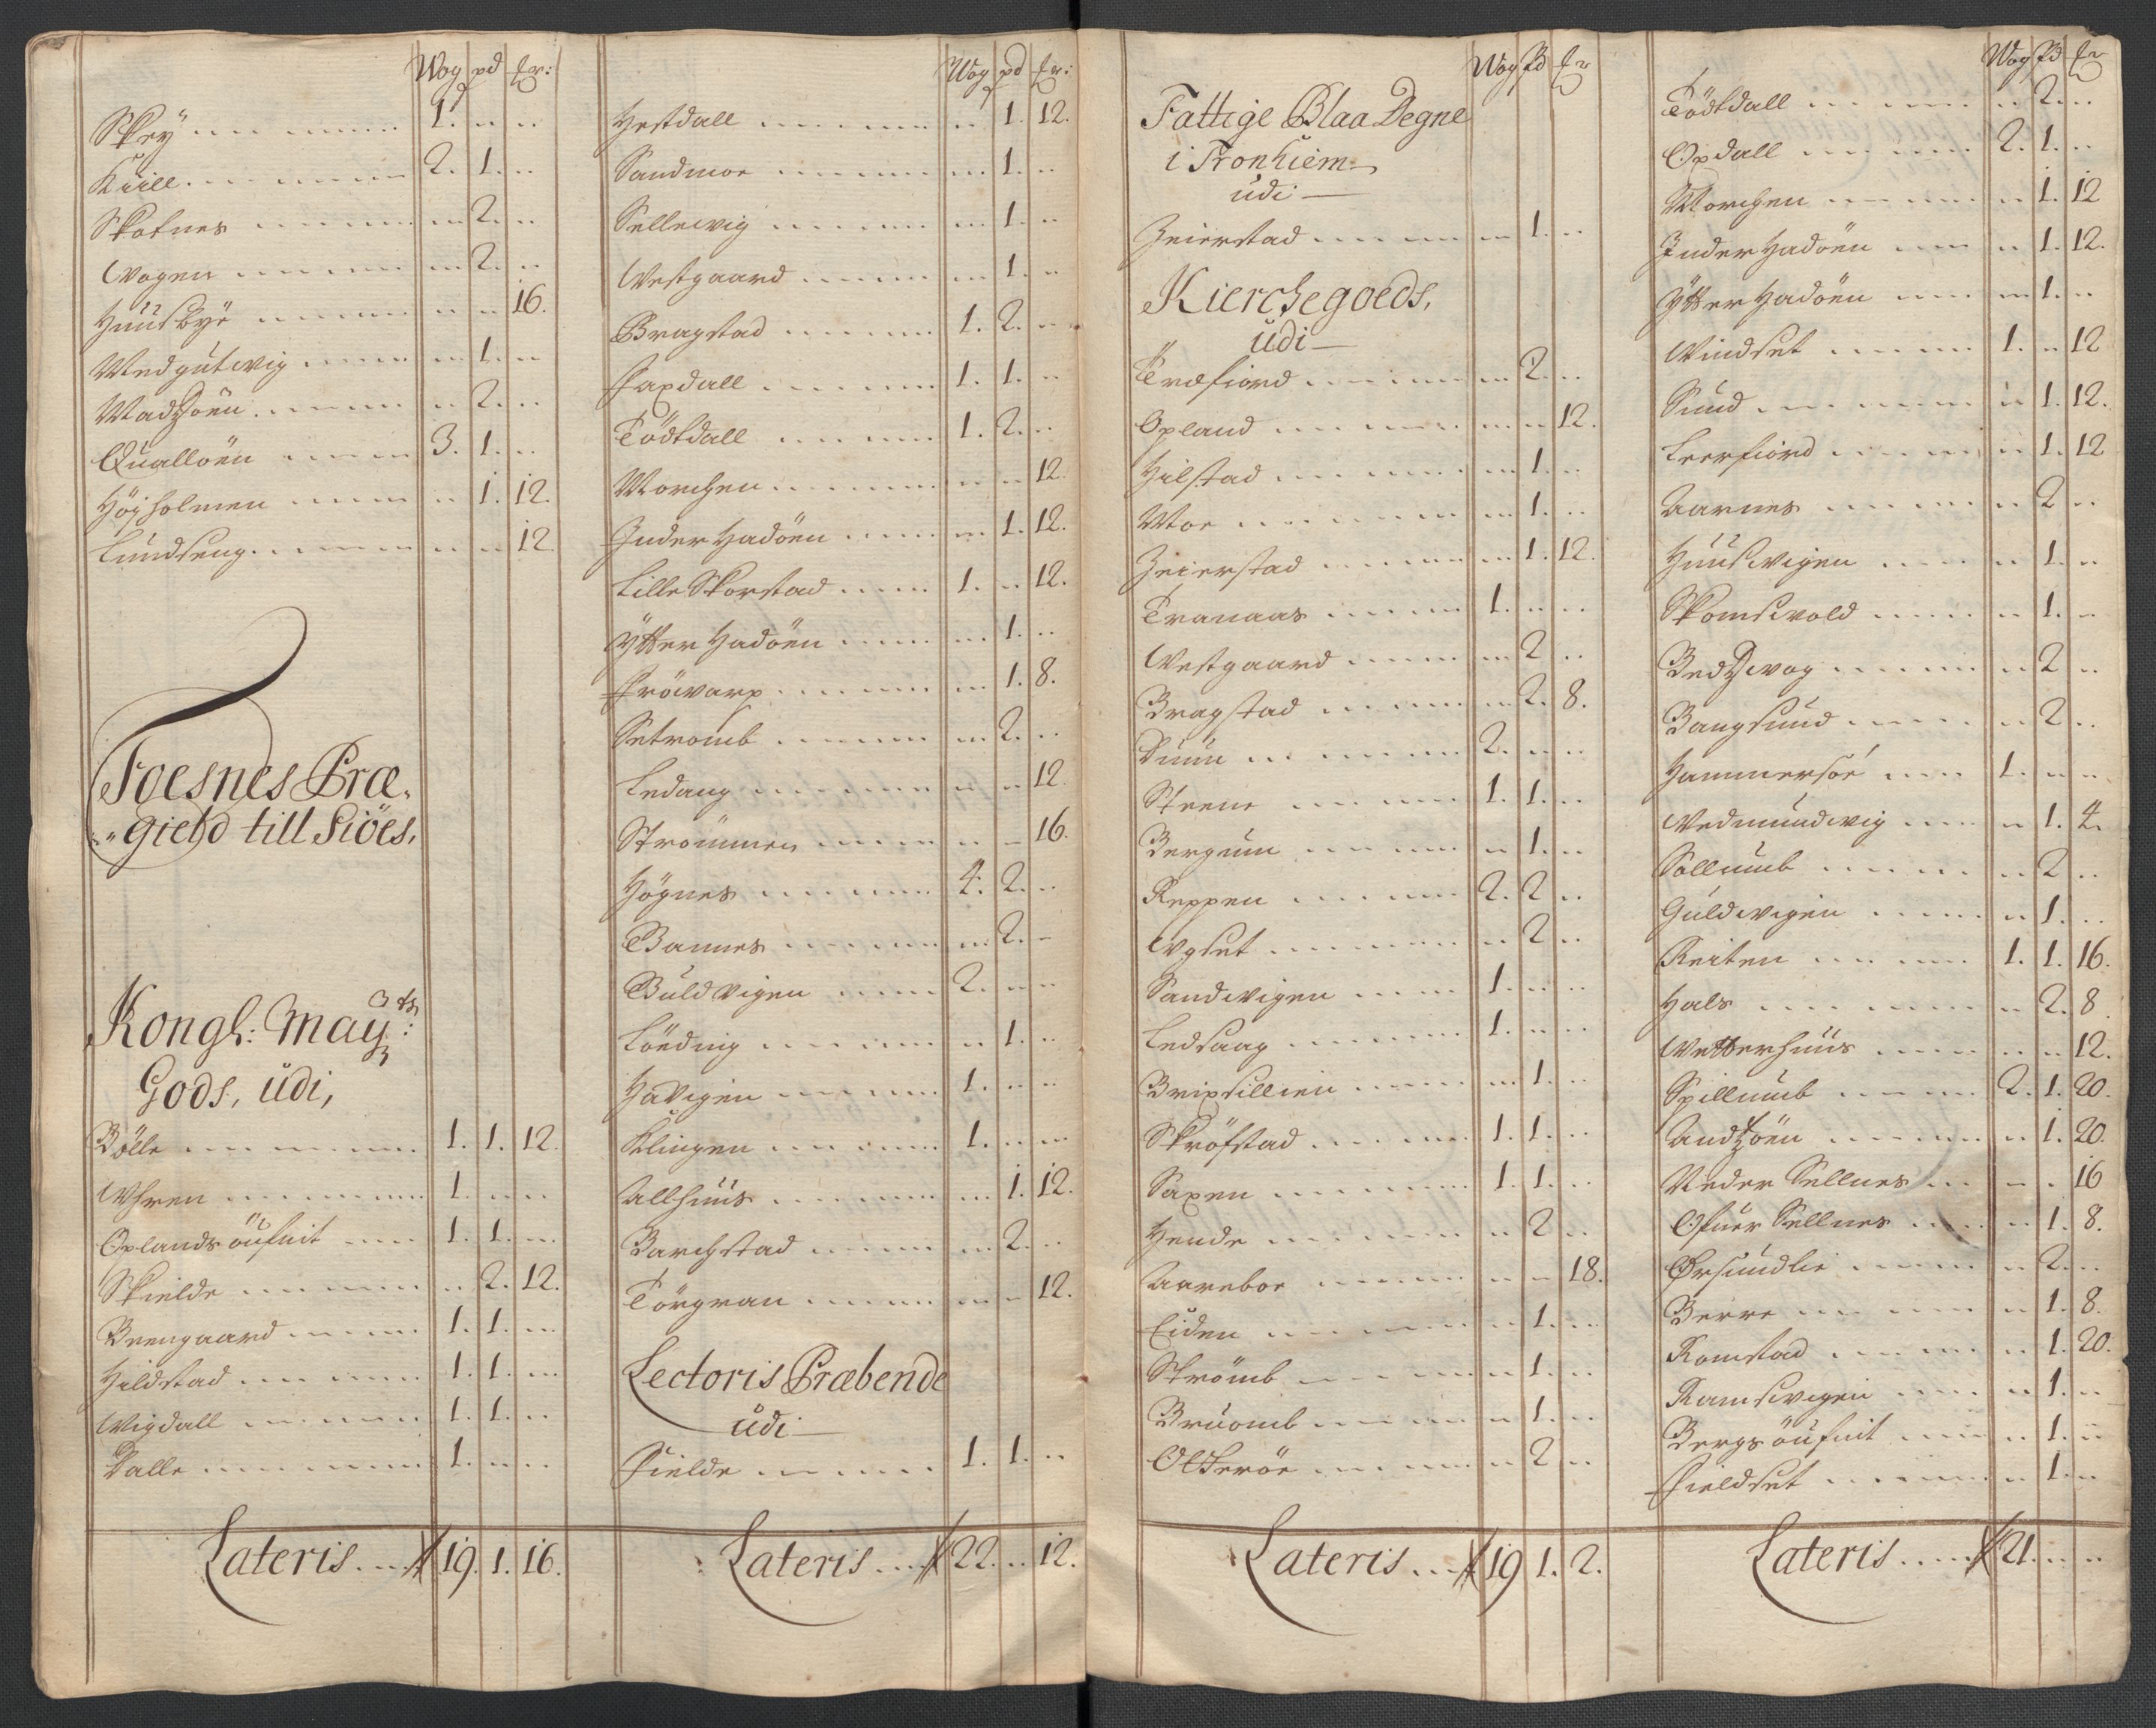 Wog pd ℔r:
Skey 1. .. ..
Kiill 2. 1. ..
Skotnes .. 2. ..
Wogen .. 2. ..
Huusbye .. .. 16.
Wedgutwig .. 1. ..
Madsöen .. 2. ..
Qualløen 3. 1. ..
Høyholmen .. 1. 12.
Lundseng .. .. 12.
Foesnes Præ-
gield till Siöes,
Kongl: May:ts
Gods, udi,
Bölle 1. 1. 12.
Whren 1. .. ..
Oplands öufuit 1. 1. ..
Skielde .. 2. 12.
Brengaard 1. 1. ..
Hildstad 1. 1. ..
Wigdall 1. 1. ..
Dalle 1. .. ..
Lateris 19. 1. 16.
Wog pd ℔r:
Hestdall .. 1. 12.
Sandmoe .. 1. ..
Sellewig .. 1. ..
Westgaard .. 1. ..
Bragstad 1. 2. ..
Faxdall 1. 1. ..
Tödtdall 1. 2. ..
Morchen .. .. 12.
Inder Hadöen .. 1. 12.
Lille Skorstad 1. .. 12.
Ytter Hadöen .. 1. ..
Fröwarp .. 1. 8.
Setromb .. 2. ..
Ledang .. .. 12.
Strömmen .. .. 16.
Högnes 4. 2. ..
Bannes .. 2. ..
Buldvigen 2. .. ..
Löeding .. 1. ..
Havigen 1. .. ..
Klingen 1. .. ..
Allhuus .. 1. 12.
Barchstad .. 2. ..
Törgran .. .. 12.
Lectoris Præbende
udi
Fielde 1. 1. ..
Lateris 22. .. 12.
Wog Pd ℔r
Fattige Blaa Degne
i Tronhiem
udi
Zeierstad .. 1. ..
Kierchegoeds,
udi
Træfiord .. 2. ..
Opland .. .. 12.
Hilstad .. 1. ..
Moe .. 1. ..
Zeierstad .. 1. 12.
Tranaas 1. .. ..
Westgaard .. 2 ..
Bragstad .. 2. 8.
Duun 2. .. ..
Steene 1. 1. ..
Bergum .. 1. ..
Reppen 2. 2 ..
Vgset .. 2 ..
Sandwigen 1. .. ..
Ledsaag 1. .. ..
Brixsillien .. 1. ..
Skröfstad 1. 1. ..
Saxen 1. 1. ..
Hende .. 2 ..
Aareboe .. .. 18.
Eiden .. 1. ..
Strömb .. 1. ..
Bruomb .. 1. ..
Olteröe .. 2 ..
Lateris 19 1. 2.
Wog Pd ℔r
Tödtdall .. 2. ..
Opdall 2. 1. ..
Morchen .. 1. 12
Inder Hadöen .. 1. 12.
Ytter Hadöen .. 1. ..
Windset 1. .. 12
Sund .. 1. 12.
Leerfiord .. 1. 12
Aarnes .. 2 ..
Huuswigen .. 1. ..
Skomswold .. 1. ..
Bedswog .. 2 ..
Bangsund .. 2 ..
Hammersöe 1. .. ..
Wedmundwig .. 1. 4.
Sollumb .. 2 ..
Guldwigen .. 1. ..
Reiten 1. 1. 16.
Hals .. 2. 8.
Wetterhuus .. .. 12.
Spillumb 2. 1. 20.
Andzöen .. 1. 20.
Neder Sellnes .. .. 16
Ofuer Sellnes .. 1. 8.
Ørsundlie .. 2. ..
Berre .. 1. 8.
Romstad .. 1. 20.
Ramswigen .. 1. ..
Bergs öufuit .. 1. ..
Fieldset .. 1. ..
Lateris 21. .. ..